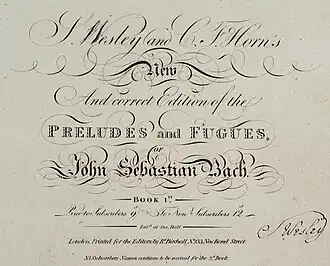 S. Wesley and C. F. Horn's
New
And correct Edition of the
PRELUDES and FUGUES,
OF
John Sebastian Bach.
BOOK 1st
Price to Subscribers 9s. To Non Subscribers 12s.
Ent. at Sta. Hall.
London, Printed for the Editors by Rt. Birchall, No. 133, New Bond Street.
N.B. Subscribers Names continue to be received for the 2d. Book.
S Wesley